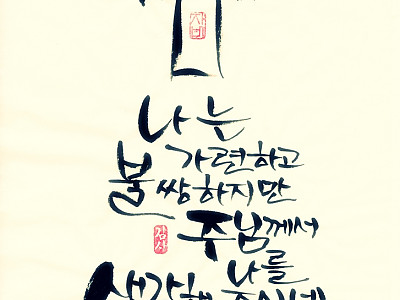 나는
가련하고
불쌍하지만
주님께서
나를
생각해 주시네